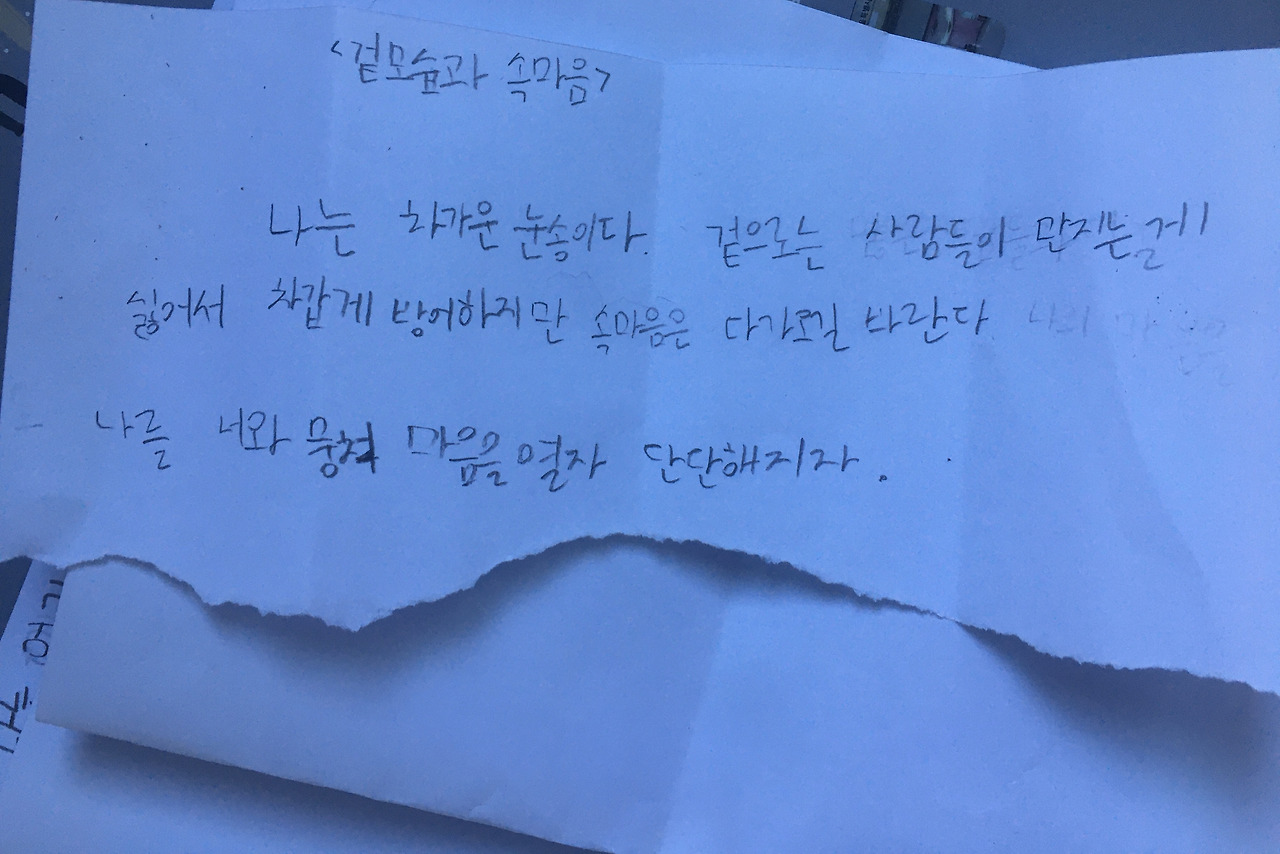 <겉모습과 속마음>
나는 차가운 눈송이다. 겉으로는 사람들이 만지는게
싫어서 차갑게 방어하지만 속마음은 다가오길 바란다
나를 너와 뭉쳐 마음을 열자 단단해지자.